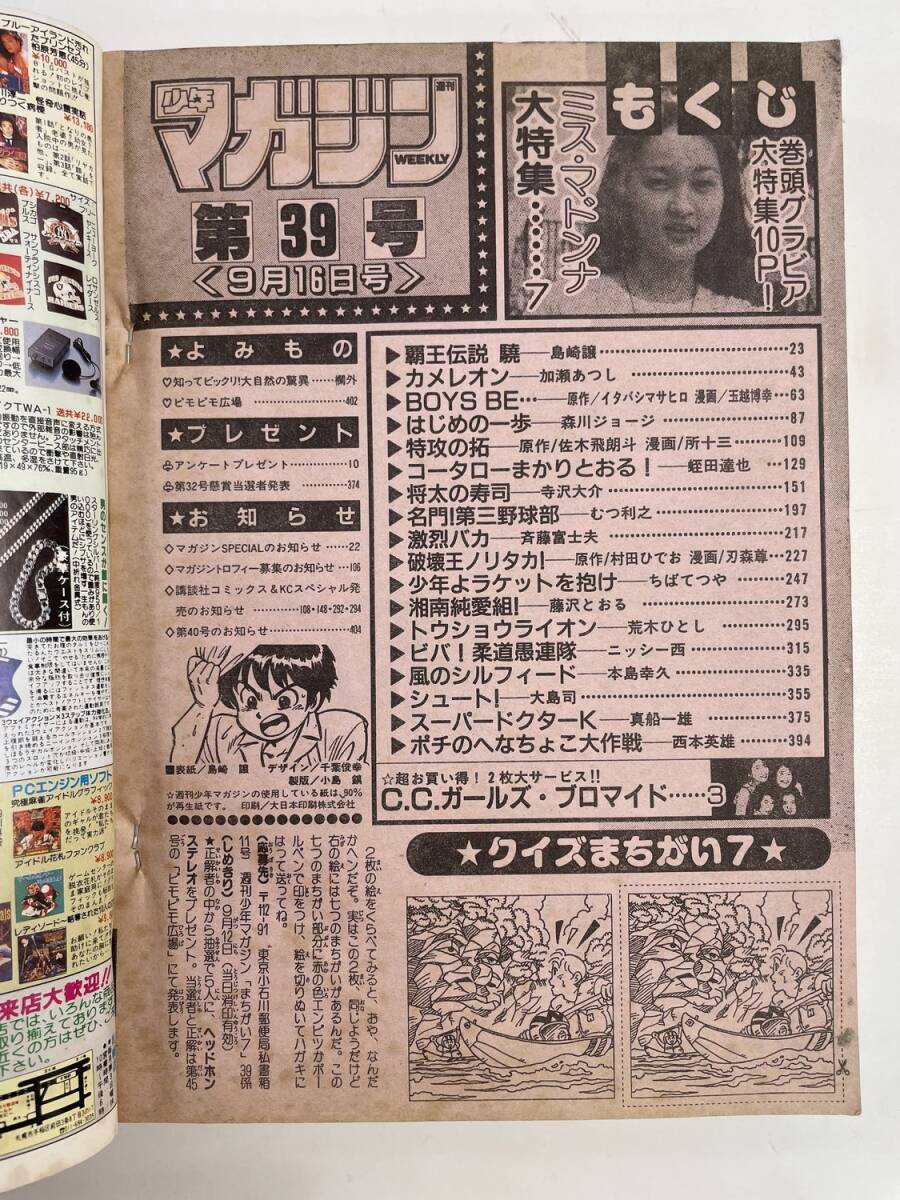 少年
マガジン
週刊
WEEKLY
第39号
〈9月16日号〉
もくじ
巻頭グラビア
大特集10P!
ミス・マドンナ
大特集……7
★よみもの
♡知ってビックリ!大自然の驚異……欄外
♡ピモピモ広場……402
★プレゼント
♧アンケートプレゼント……10
♧第32号懸賞当選者発表……374
★お知らせ
◇マガジンSPECIALのお知らせ……22
◇マガジントロフィー募集のお知らせ…106
◇講談社コミックス&KCスペシャル発
売のお知らせ……108・148・292・294
◇第40号のお知らせ……404
▶覇王伝説 驍──島崎譲……23
▶カメレオン──加瀬あつし……43
▶BOYS BE…──原作/イタバシマサヒロ 漫画/玉越博幸…63
▶はじめの一歩──森川ジョージ……87
▶特攻の拓──原作/佐木飛朗斗 漫画/所十三……109
▶コータローまかりとおる!──蛭田達也…129
▶将太の寿司──寺沢大介……151
▶名門!第三野球部──むつ利之……197
▶激烈バカ──斉藤富士夫……217
▶破壊王ノリタカ!──原作/村田ひでお 漫画/刃森尊…227
▶少年よラケットを抱け──ちばてつや……247
▶湘南純愛組!──藤沢とおる……273
▶トウショウライオン──荒木ひとし……295
▶ビバ!柔道愚連隊──ニッシー西……315
▶風のシルフィード──本島幸久……335
▶シュート!──大島司……355
▶スーパードクターK──真船一雄……375
▶ポチのへなちょこ大作戦──西本英雄……394
■表紙/島崎 譲 デザイン/千葉俊幸
製版/小島 鎮
☆週刊少年マガジンの使用している紙は、90%
が再生紙です。 印刷/大日本印刷株式会社
☆超お買い得!2枚大サービス!!
C.C.ガールズ・ブロマイド……3
★クイズまちがい7★
2枚の絵をくらべてみると、おや、なんだ
かヘンだぞ。実はこの2枚、同じようだけど
右の絵には七つのまちがいがあるんだ。この
七つのまちがい部分に赤の色エンピツかボー
ルペンで印をつけ、絵を切りぬいてハガキに
はって送ってね。
〈応募先〉〒112-91 東京小石川郵便局私書箱
11号 週刊少年マガジン「まちがい7」39係
〈しめきり〉9月12日(当日消印有効)
★正解者の中から抽選で5人に、ヘッドホン
ステレオをプレゼント。当選者と正解は第45
号の「ピモピモ広場」にて発表します。
ブルーアイランド汚れ
たプリンセス
柏原芳恵(45分)
¥10,000
怪奇心霊実話
¥13,180
送共(各)¥7,200
シカゴ
ブルズ
サンフランシスコ
フォーティナイナース
クTWA-1 送共¥22,000
男のセンスが
ケース付)
PCエンジン用ソフト
究極麻雀アイドルグラフィック
¥8,900
アイドル花札ファンクラブ
¥8,900
来店大歓迎!!